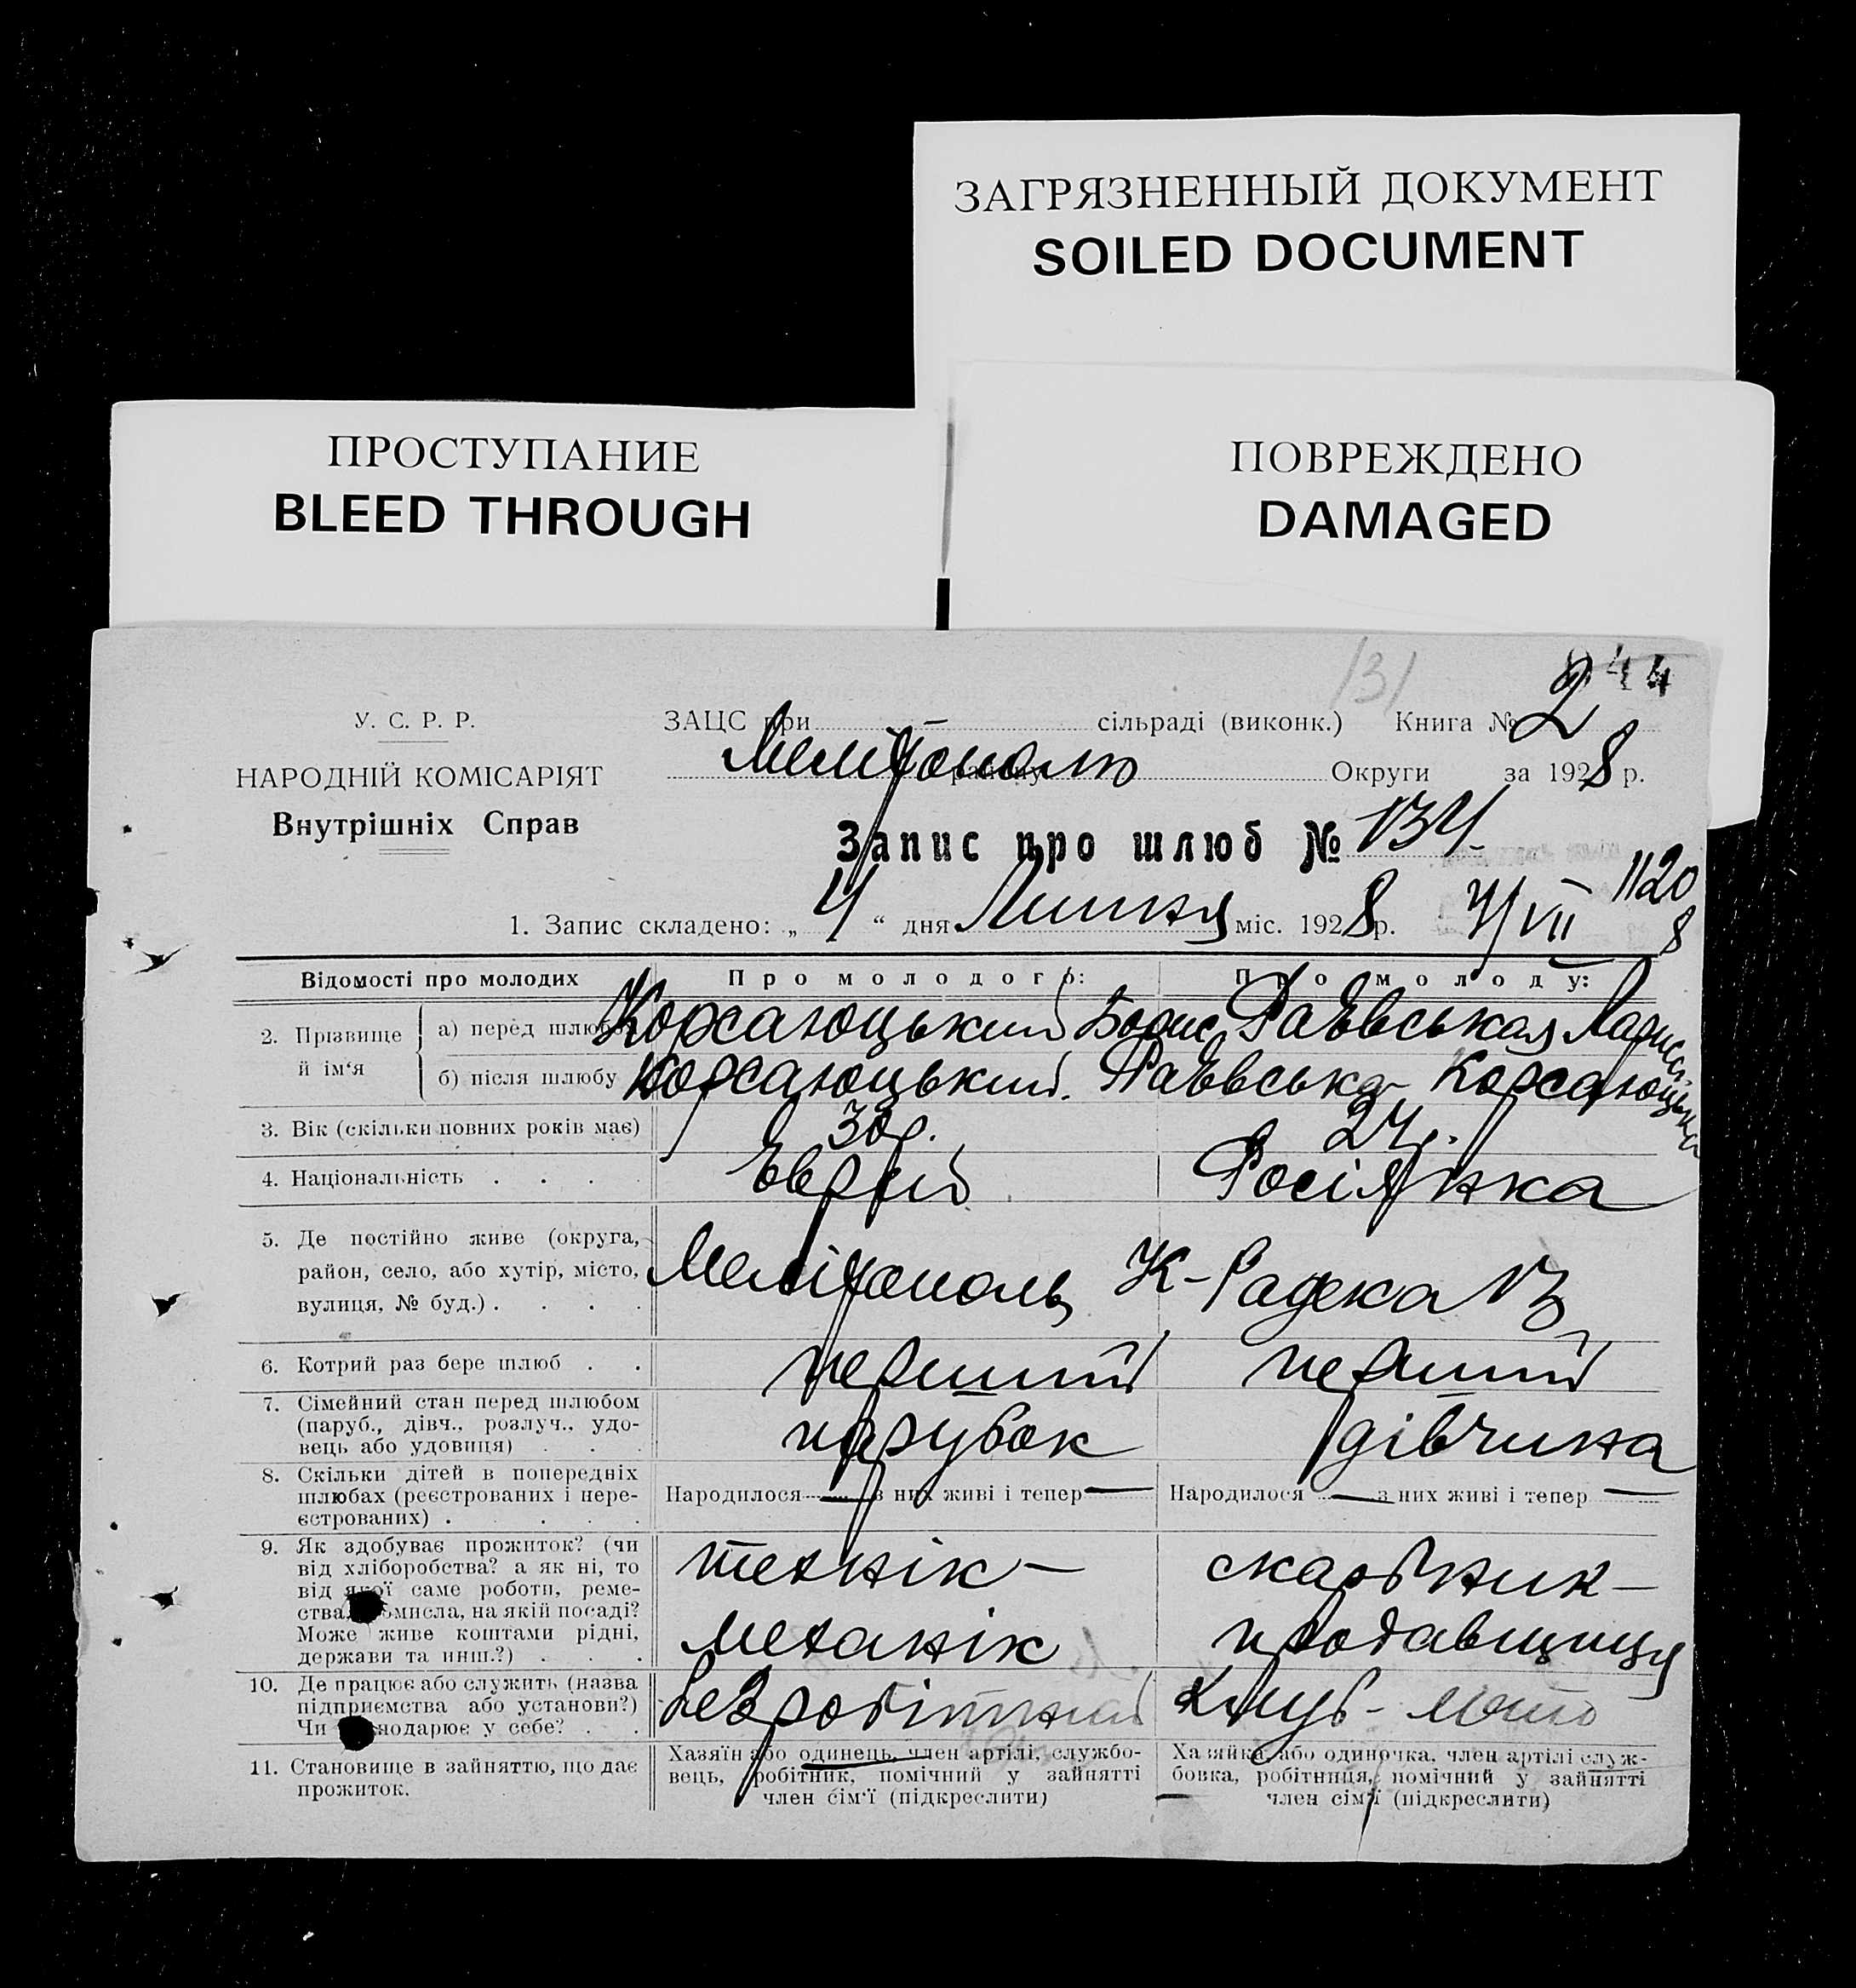 ЗАГРЯЗНЕННЫЙ ДОКУМЕНТ
SOILED DOCUMENT
ПРОСТУПАНИЕ
BLEED THROUGH
ПОВРЕЖДЕНО
DAMAGED
131
244
У. С. Р. Р.
НАРОДНІЙ КОМІСАРІЯТ
Внутрішніх Справ
ЗАЦС при — сільраді (виконк.) Книга № 2
Мелітополю району Округи за 1928 р.
Запис про шлюб № 134
1120
1. Запис складено: „ 4 “ дня Липня міс. 1928 р. 4/VII 8
Відомості про молодих Про молодого: Про молоду:
2. Прізвище й ім‘я
а) перед шлюбом Корсаюцький Борис Раєвськая Лариса
б) після шлюбу Корсаюцький. Раєвська Корсаюцька
3. Вік (скільки повних років має) 30 р. 24 р.
4. Національність . . . . Еврей Росіянка
5. Де постійно живе (округа,
район, село, або хутір, місто,
вулиця, № буд.) . . . .
Мелітополь К-Радека 13
6. Котрий раз бере шлюб . . перший перший
7. Сімейний стан перед шлюбом
(паруб., дівч., розлуч., удо-
вець або удовиця) . . .
парубок дівчина
8. Скільки дітей в попередніх
шлюбах (реєстрованих і нере-
єстрованих) . . . . .
Народилося — з них живі і тепер — Народилося — з них живі і тепер —
9. Як здобуває прожиток? (чи
від хліборобства? а як ні, то
від якої саме роботи, реме-
ства, промисла, на якій посаді?
Може живе коштами рідні,
держави та инш.?) . . .
технік — скарбник —
механік продавщиця
10. Де працює або служить (назва
підприємства або установи?)
Чи господарює у себе? . .
безробітний Клуб-
11. Становище в зайняттю, що дає
прожиток.
Хазяїн або одинець, член артілі, службо-
вець, робітник, помічний у зайнятті
член сім‘ї (підкреслити)
Хазяйка, або одиночка, член артілі служ-
бовка, робітниця, помічний у зайнятті
член сім‘ї (підкреслити)